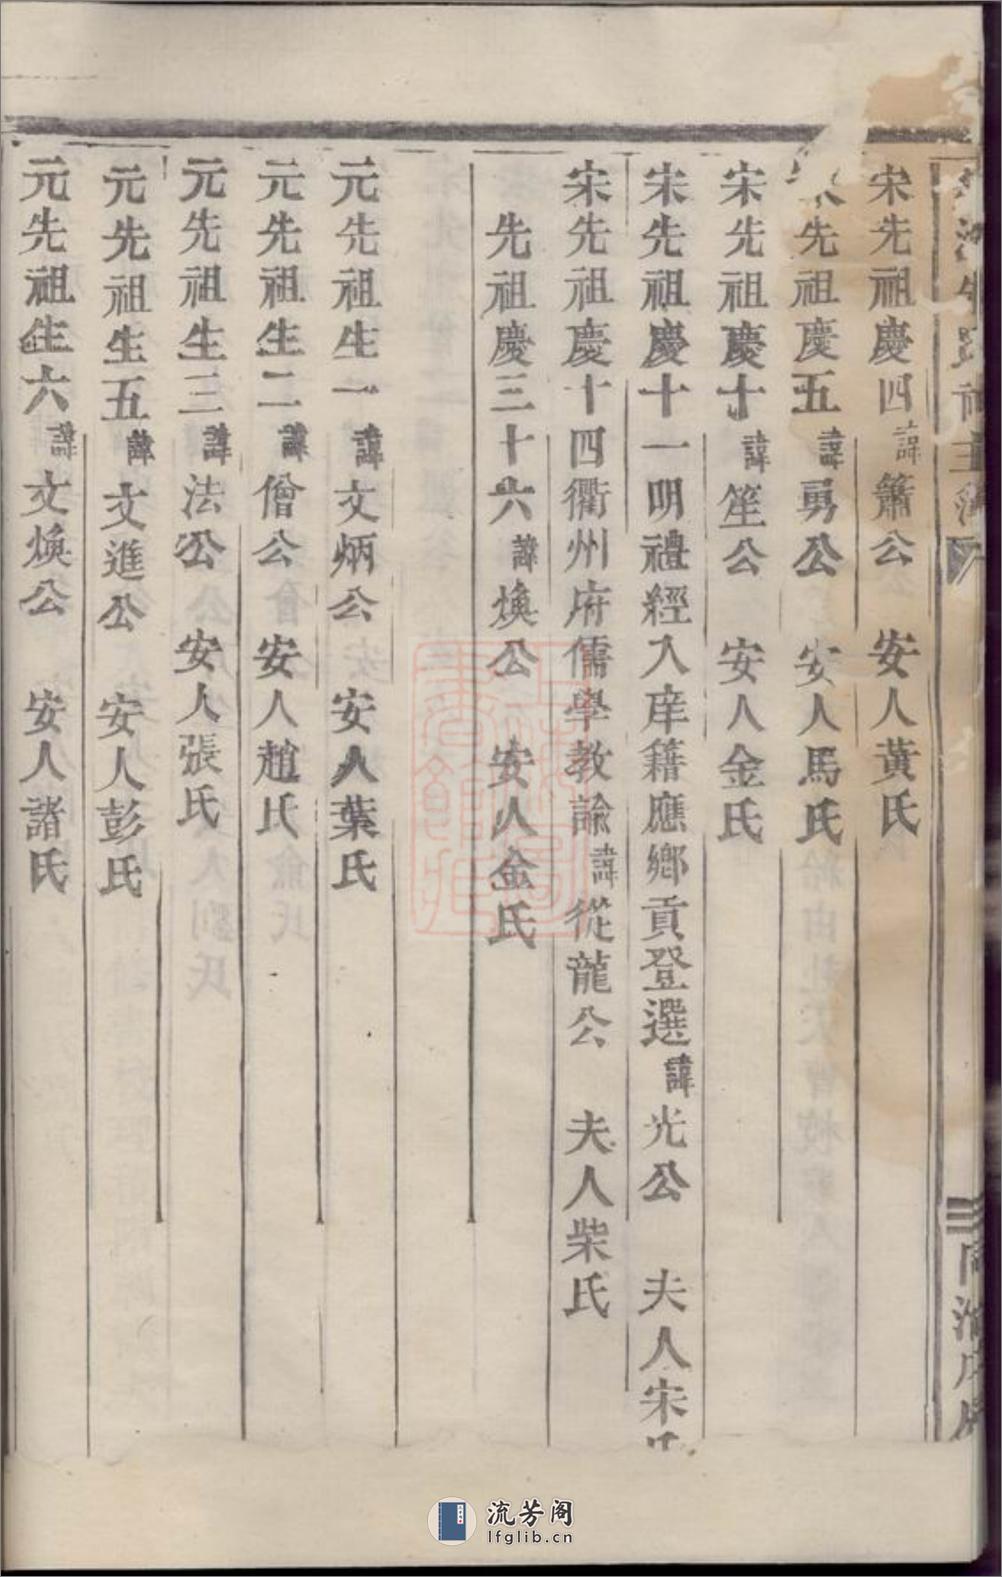 宋先祖慶四諱簫公　安人黃氏
先祖慶五諱勇公　安人馬氏
宋先祖慶十諱笙公　安人金氏
宋先祖慶十一明禮經入庠籍應鄉貢登選諱光公　夫人宋氏
宋先祖慶十四衢州府儒學教諭諱從龍公　夫人柴氏
先祖慶三十六諱煥公　安人金氏
元先祖生一諱文炳公　安人葉氏
元先祖生二諱僧公　安人趙氏
元先祖生三諱法公　安人張氏
元先祖生五諱文進公　安人彭氏
元先祖生六諱文煥公　安人諸氏
流芳阁
lfglib.cn